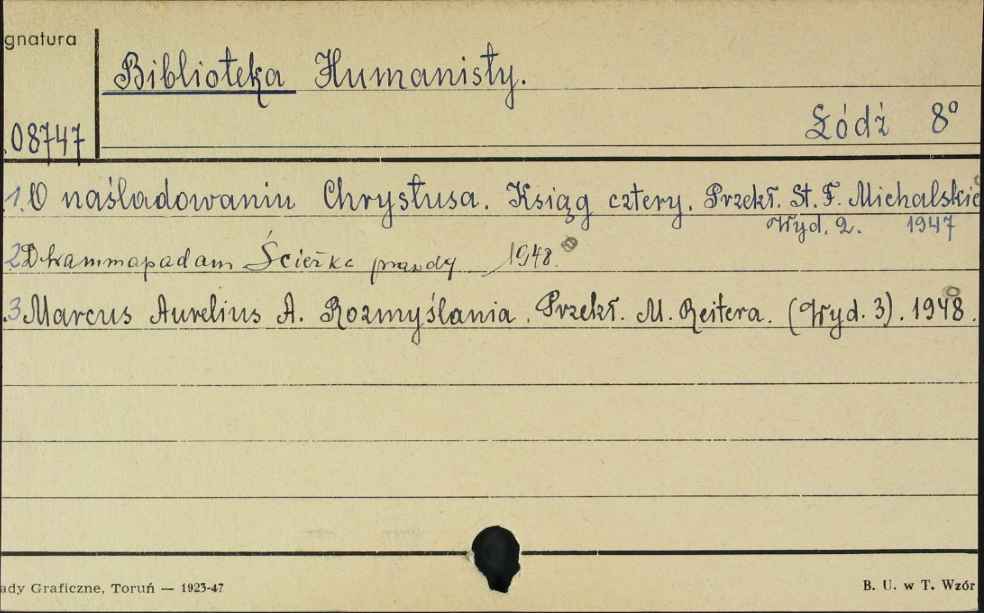 gnatura
Biblioteka Humanisty.
08747
Łódź 8°
1. O naśladowaniu Chrystusa. Ksiąg cztery. Przekł. St. F. Michalskie
Wyd. 2. 1947
2 Dhammapadam Ścieżka prawdy 1948.
3 Marcus Aurelius A. Rozmyślania. Przekł. M. Reitera. (Wyd. 3). 1948.
ady Graficzne, Toruń — 1923-47
B. U. w T. Wzór